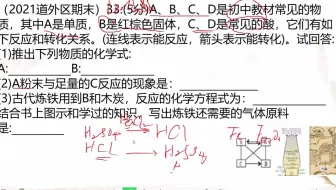 (2021道外区期末) 33.(5分)A、B、C、D是初中教材常见的物
质，其中A是单质，B是红棕色固体，C、D是常见的酸，它们有如
下反应和转化关系。(连线表示能反应，箭头表示能转化)。试回答:
(1)推出下列物质的化学式:
A: B:
(2)A粉末与足量的C反应的现象是:
(3)古代炼铁用到B和木炭，反应的化学方程式为:
结合书上图示和学过的知识，写出炼铁还需要的气体原料
是:
H₂SO₄ → HCl
HCl → H₂SO₄
Fe